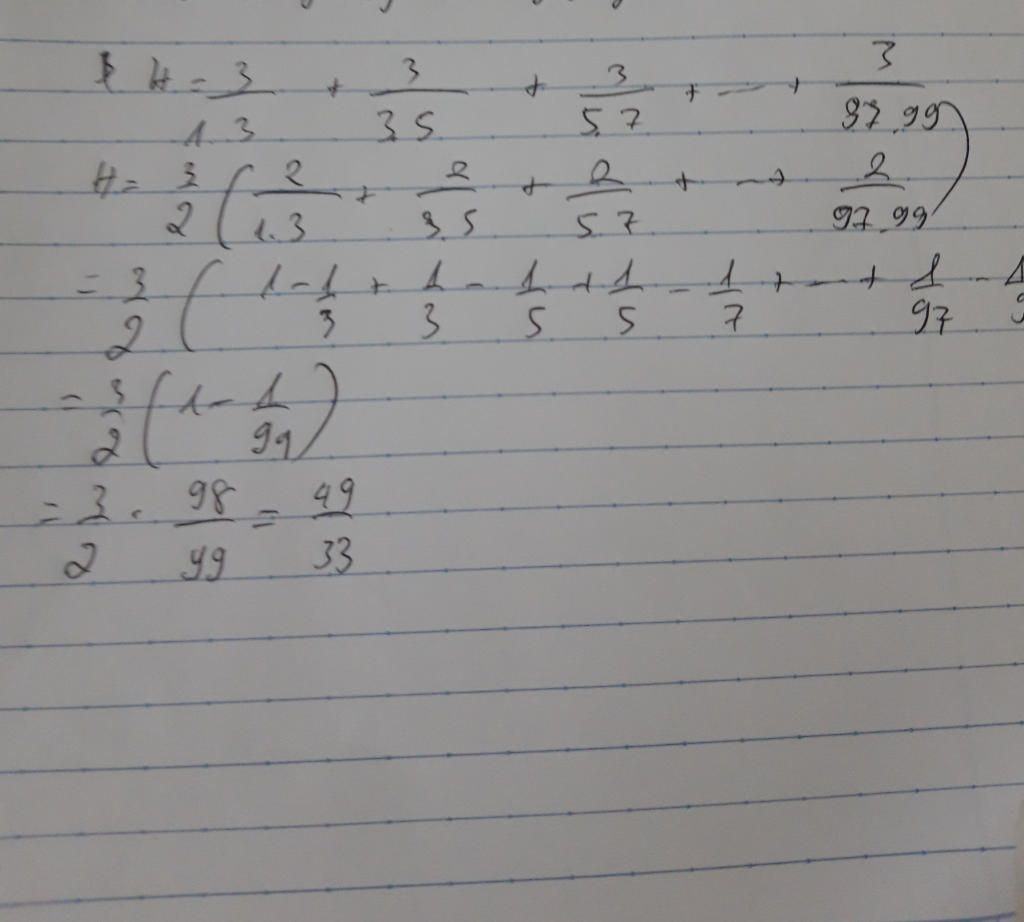 H = 3/1.3 + 3/3.5 + 3/5.7 + ... + 3/97.99
H = 3/2 ( 2/1.3 + 2/3.5 + 2/5.7 + ... + 2/97.99 )
= 3/2 ( 1 - 1/3 + 1/3 - 1/5 + 1/5 - 1/7 + ... + 1/97 - 1/9
= 3/2 ( 1 - 1/99 )
= 3/2 . 98/99 = 49/33